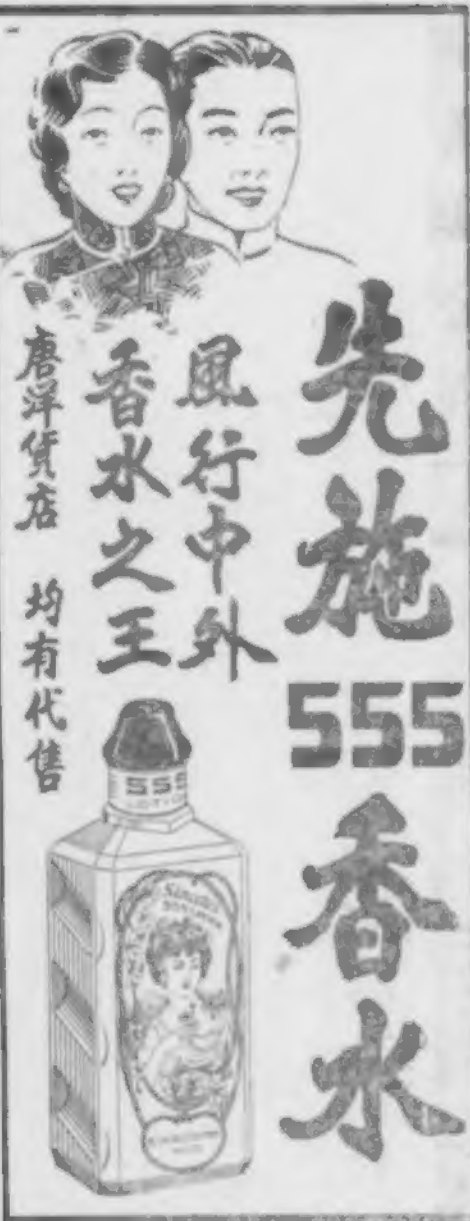 先施555香水
風行中外
香水之王
唐洋貨店 均有代售
555
LOTION